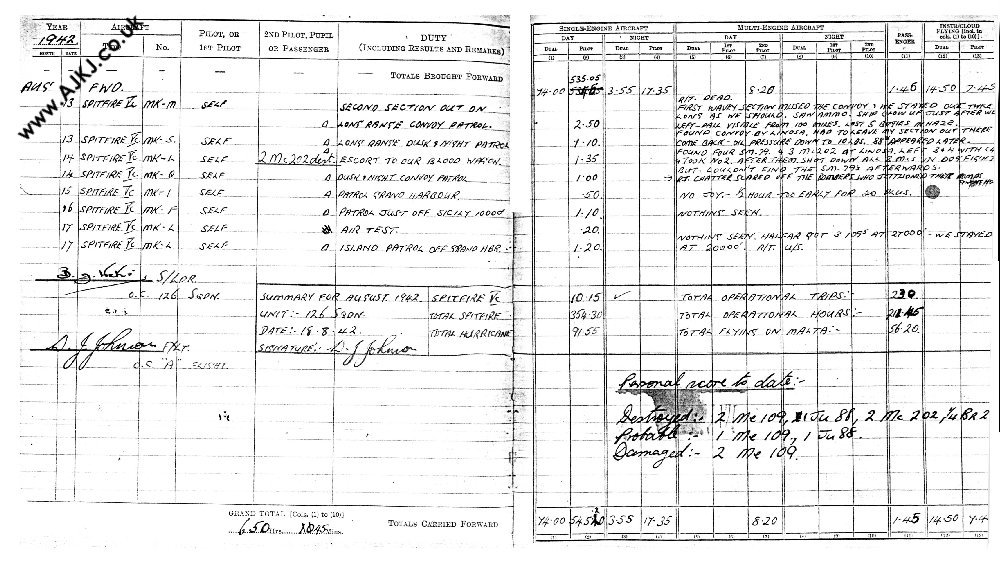 YEAR
AIRCRAFT
PILOT, OR
1ST PILOT
2ND PILOT, PUPIL
OR PASSENGER
DUTY
(INCLUDING RESULTS AND REMARKS)
1942
MONTH DATE
No.
TOTALS BROUGHT FORWARD
AUG FWD.
13 SPITFIRE Vc MK-M SELF SECOND SECTION OUT ON
LONG RANGE CONVOY PATROL.
13 SPITFIRE Vc MK-S. SELF LONG RANGE DUSK & NIGHT PATROL
14 SPITFIRE Vc MK-L SELF 2 Mc 202 dest. ESCORT TO OUR BLOOD WAGON.
14 SPITFIRE Vc MK-Q SELF DUSK & NIGHT CONVOY PATROL
15 SPITFIRE Vc MK-I SELF PATROL GRAND HARBOUR.
16 SPITFIRE Vc MK-F SELF PATROL JUST OFF SICILY 10000
17 SPITFIRE Vc MK-L SELF AIR TEST.
17 SPITFIRE Vc MK-L SELF ISLAND PATROL OFF GRAND HBR.
S/LDR.
O.C. 126 SQDN.
SUMMARY FOR AUGUST. 1942. SPITFIRE Vc
UNIT:- 126 SQDN. TOTAL SPITFIRE
DATE:- 18.8.42. TOTAL HURRICANE
SIGNATURE:- D. J Johnson
D. J Johnson F/LT.
O.C. "A" FLIGHT.
GRAND TOTAL [Cols. (1) to (10)]
650 Hrs. 45 Mins.
TOTALS CARRIED FORWARD
SINGLE-ENGINE AIRCRAFT
MULTI-ENGINE AIRCRAFT
PASS-
ENGER
INSTR/CLOUD
FLYING [Incl. in
cols. (1) to (10)]
DAY NIGHT DAY NIGHT
DUAL PILOT DUAL PILOT DUAL 1ST PILOT 2ND PILOT DUAL 1ST PILOT 2ND PILOT DUAL PILOT
(1) (2) (3) (4) (5) (6) (7) (8) (9) (10) (11) (12) (13)
535.05
74.00 3.55 17.35 8.20 1.45 14.50 7.45
R/T. DEAD.
FIRST WAVEY SECTION MISSED THE CONVOY & WE STAYED OUT TWICE
LONG AS WE SHOULD. SAW AMMO. SHIP BLOW UP JUST AFTER WE
2.50 LEFT - PALL VISIBLE FROM 100 MILES. LOST 5 ERTIES IN HAZE.
FOUND CONVOY BY LINOSA, HAD TO LEAVE MY SECTION OUT THERE
1.10. COME BACK - OIL PRESSURE DOWN TO 10 LBS. 88S APPEARED LATER.
FOUND FOUR S.M. 79. & 3 M. 202 AT LINOSA. LEFT
1.35 & TOOK NO2. AFTER THEM SHOT DOWN ALL 3 M.C.s IN DOGFIGHT
BUT COULDN'T FIND THE S.M. 79S AFTERWARDS.
1.00 R/T. CHATTER SCARED OFF THE BOMBERS WHO JETTISONED THEIR BOMBS
.50. NO JOY - ½ HOUR TOO EARLY FOR 20 PLUS.
1.10. NOTHING SEEN.
.20.
1.20. NOTHING SEEN. HALFAR GOT 3 109S AT 27000' - WE STAYED
AT 20000'. R/T U/S.
10.15 ✓ TOTAL OPERATIONAL TRIPS:- 230
354.30 TOTAL OPERATIONAL HOURS:-
91.55 TOTAL FLYING ON MALTA:- 56.20.
Personal score to date:-
Destroyed:- 2 Me 109, 1 Ju 88, 2 Mc 202, ¼ BR 2
Probable:- 1 Me 109, 1 Ju 88.
Damaged:- 2 Me 109.
74.00 3.55 17.35 8.20 1.45 14.50 7.4
(1) (2) (3) (4) (5) (6) (7) (8) (9) (10) (11) (12) (13)
www.AJKJ.co.uk